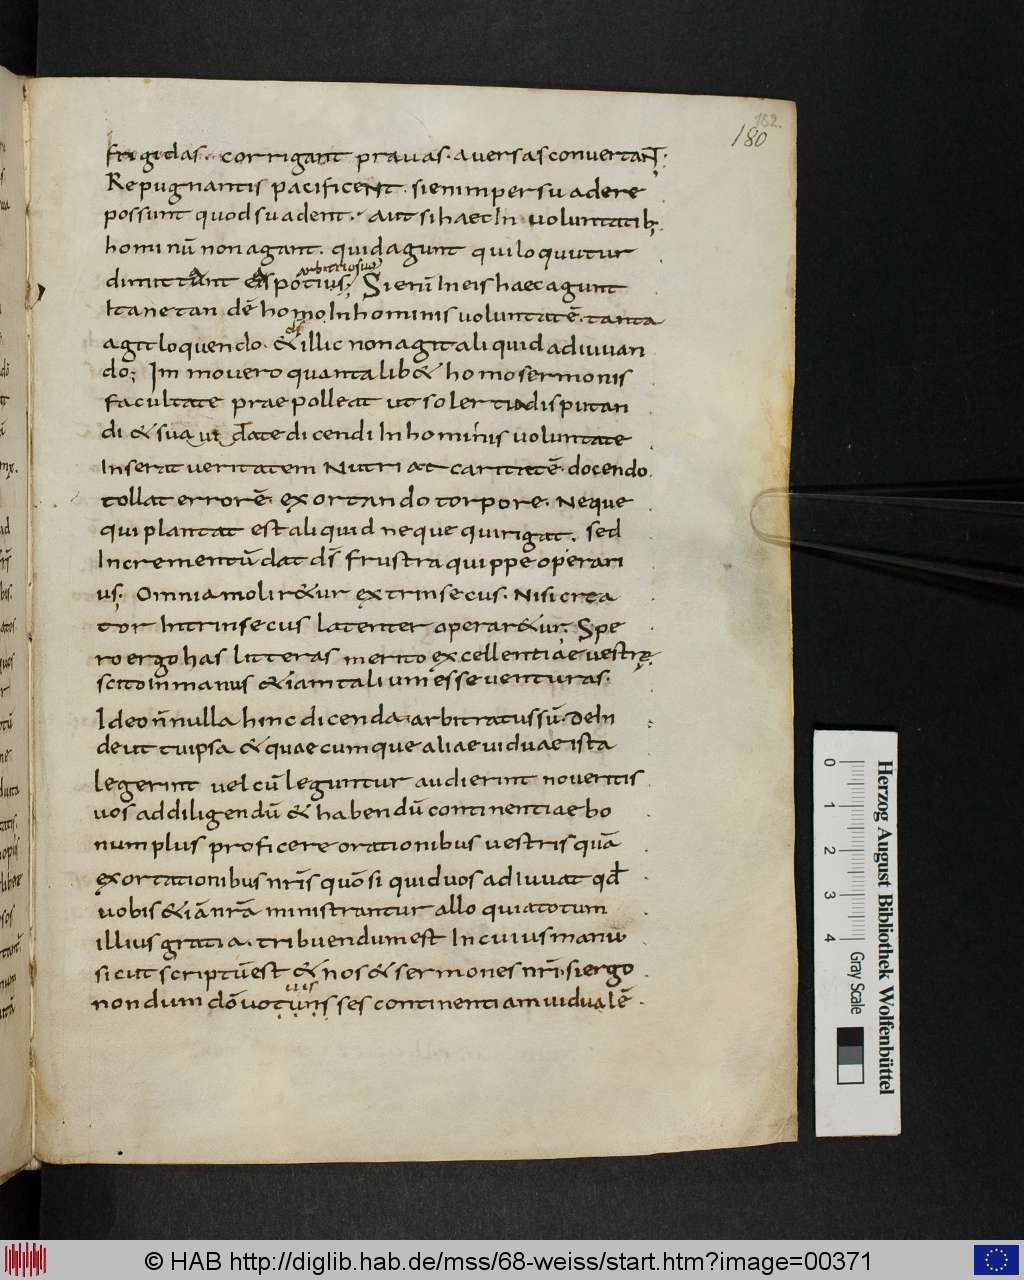 182.
180
frigidas. corrigant prauas. auersas conuertant.
Repugnantis pacificent. si enim persuadere
possunt quod suadent. aut si haec In uoluntatib;
hominū non agant. quid agunt qui loquutur
arbitrio suo
dimittant eis potius; Si enū In eis haec agunt
Itane tandē homo In hominis uoluntatē. tanta
agit loquendo. & illic non agit aliquid adiuuan
do; Immo uero quantalib& homo sermonis
facultate praepolleat ut solertia disputan
di & suauitate dicendi In hominis uoluntate
Inserat ueritatem Nutriat caritatē. docendo
tollat errorē. exortando torpore. Neque
qui plantat est aliquid neque qui rigat. sed
Incrementū dat ds̄ frustra quippe operari
us. Omnia molir&ur extrinsecus. Nisi crea
tor Intrinsecus latenter operar&ur. Spe
ro ergo has litteras merito excellentiae uestrę
scito in manus & iam talium esse uenturas.
Ideo n̄ nulla hinc dicenda arbitratus sū. deIn
de ut tu ipsa & quaecumque aliae uiduae ista
legerint uel cū leguntur audierint nouentis
uos ad diligendū & habendū continentiae bo
num plus proficere orationibus uestris quā
exortationibus nr̄is quōsi quid uos adiuuat qd̄
uobis & iā nr̄ā ministrantur allo quia totum
illius gratia. tribuendum est In cuius manu
sicut scriptū est & nos & sermones nr̄i. si ergo
nondum dō uoturis ses continentiam uidualē.
0 1 2 3 4
Gray Scale
Herzog August Bibliothek Wolfenbüttel
© HAB http://diglib.hab.de/mss/68-weiss/start.htm?image=00371